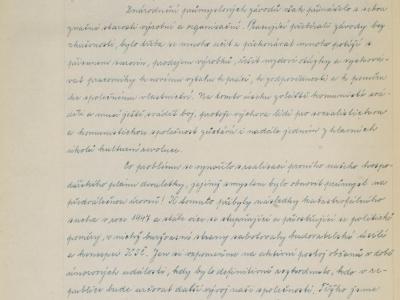 Znárodnění průmyslových závodů však přinášelo s sebou
značné starosti výrobní a organisační. Pracující přebírali závody bez
zkušeností, bylo třeba se mnoho učit a překonávat mnoho potíží s
přísunem surovin, prodejem výrobků, řešit mzdové otázky a vychová-
vat pracovníky k novému vztahu k práci, k hospodárnosti a k pomě-
ru ke společnému vlastnictví. Na tomto úseku zvláště komunisté svá-
děli a musí ještě svádět boj, protože výchova lidí pro socialistickou
a komunistickou společnost zůstává i nadále jedním z hlavních
úkolů kulturní revoluce.
Co problémů se vynořilo s realisací prvního našeho hospo-
dářského plánu dvouletky, jejímž smyslem bylo obnovit průmysl na
předválečnou úroveň! K tomuto přibyly následky katastrofálního
sucha v roce 1947 a stále více se stupňující a přiostřující se politické
poměry, v nichž buržoasní strany sabotovaly budovatelské úsilí
a koncepce KSČ. Jen se vzpomeňme na aktivní postoj občanů v době
únorových událostí, kdy bylo definitivně rozhodnuto, kdo v re-
publice bude určovat další vývoj naší společnosti. Když jsme